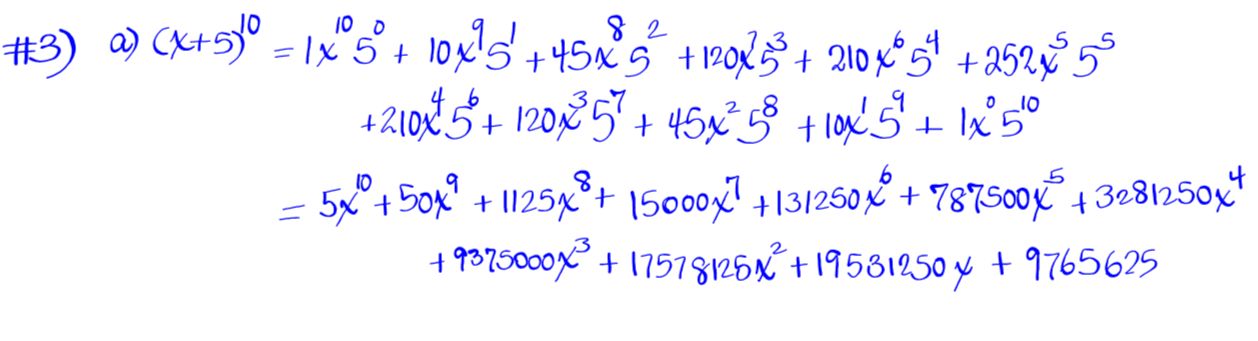 #3) a) (x+5)^10 = 1x^10 5^0 + 10x^9 5^1 + 45x^8 5^2 + 120x^7 5^3 + 210x^6 5^4 + 252x^5 5^5
+210x^4 5^6 + 120x^3 5^7 + 45x^2 5^8 + 10x^1 5^9 + 1x^0 5^10
= 5x^10 + 50x^9 + 1125x^8 + 15000x^7 + 131250x^6 + 787500x^5 + 3281250x^4
+ 9375000x^3 + 17578125x^2 + 19531250x + 9765625